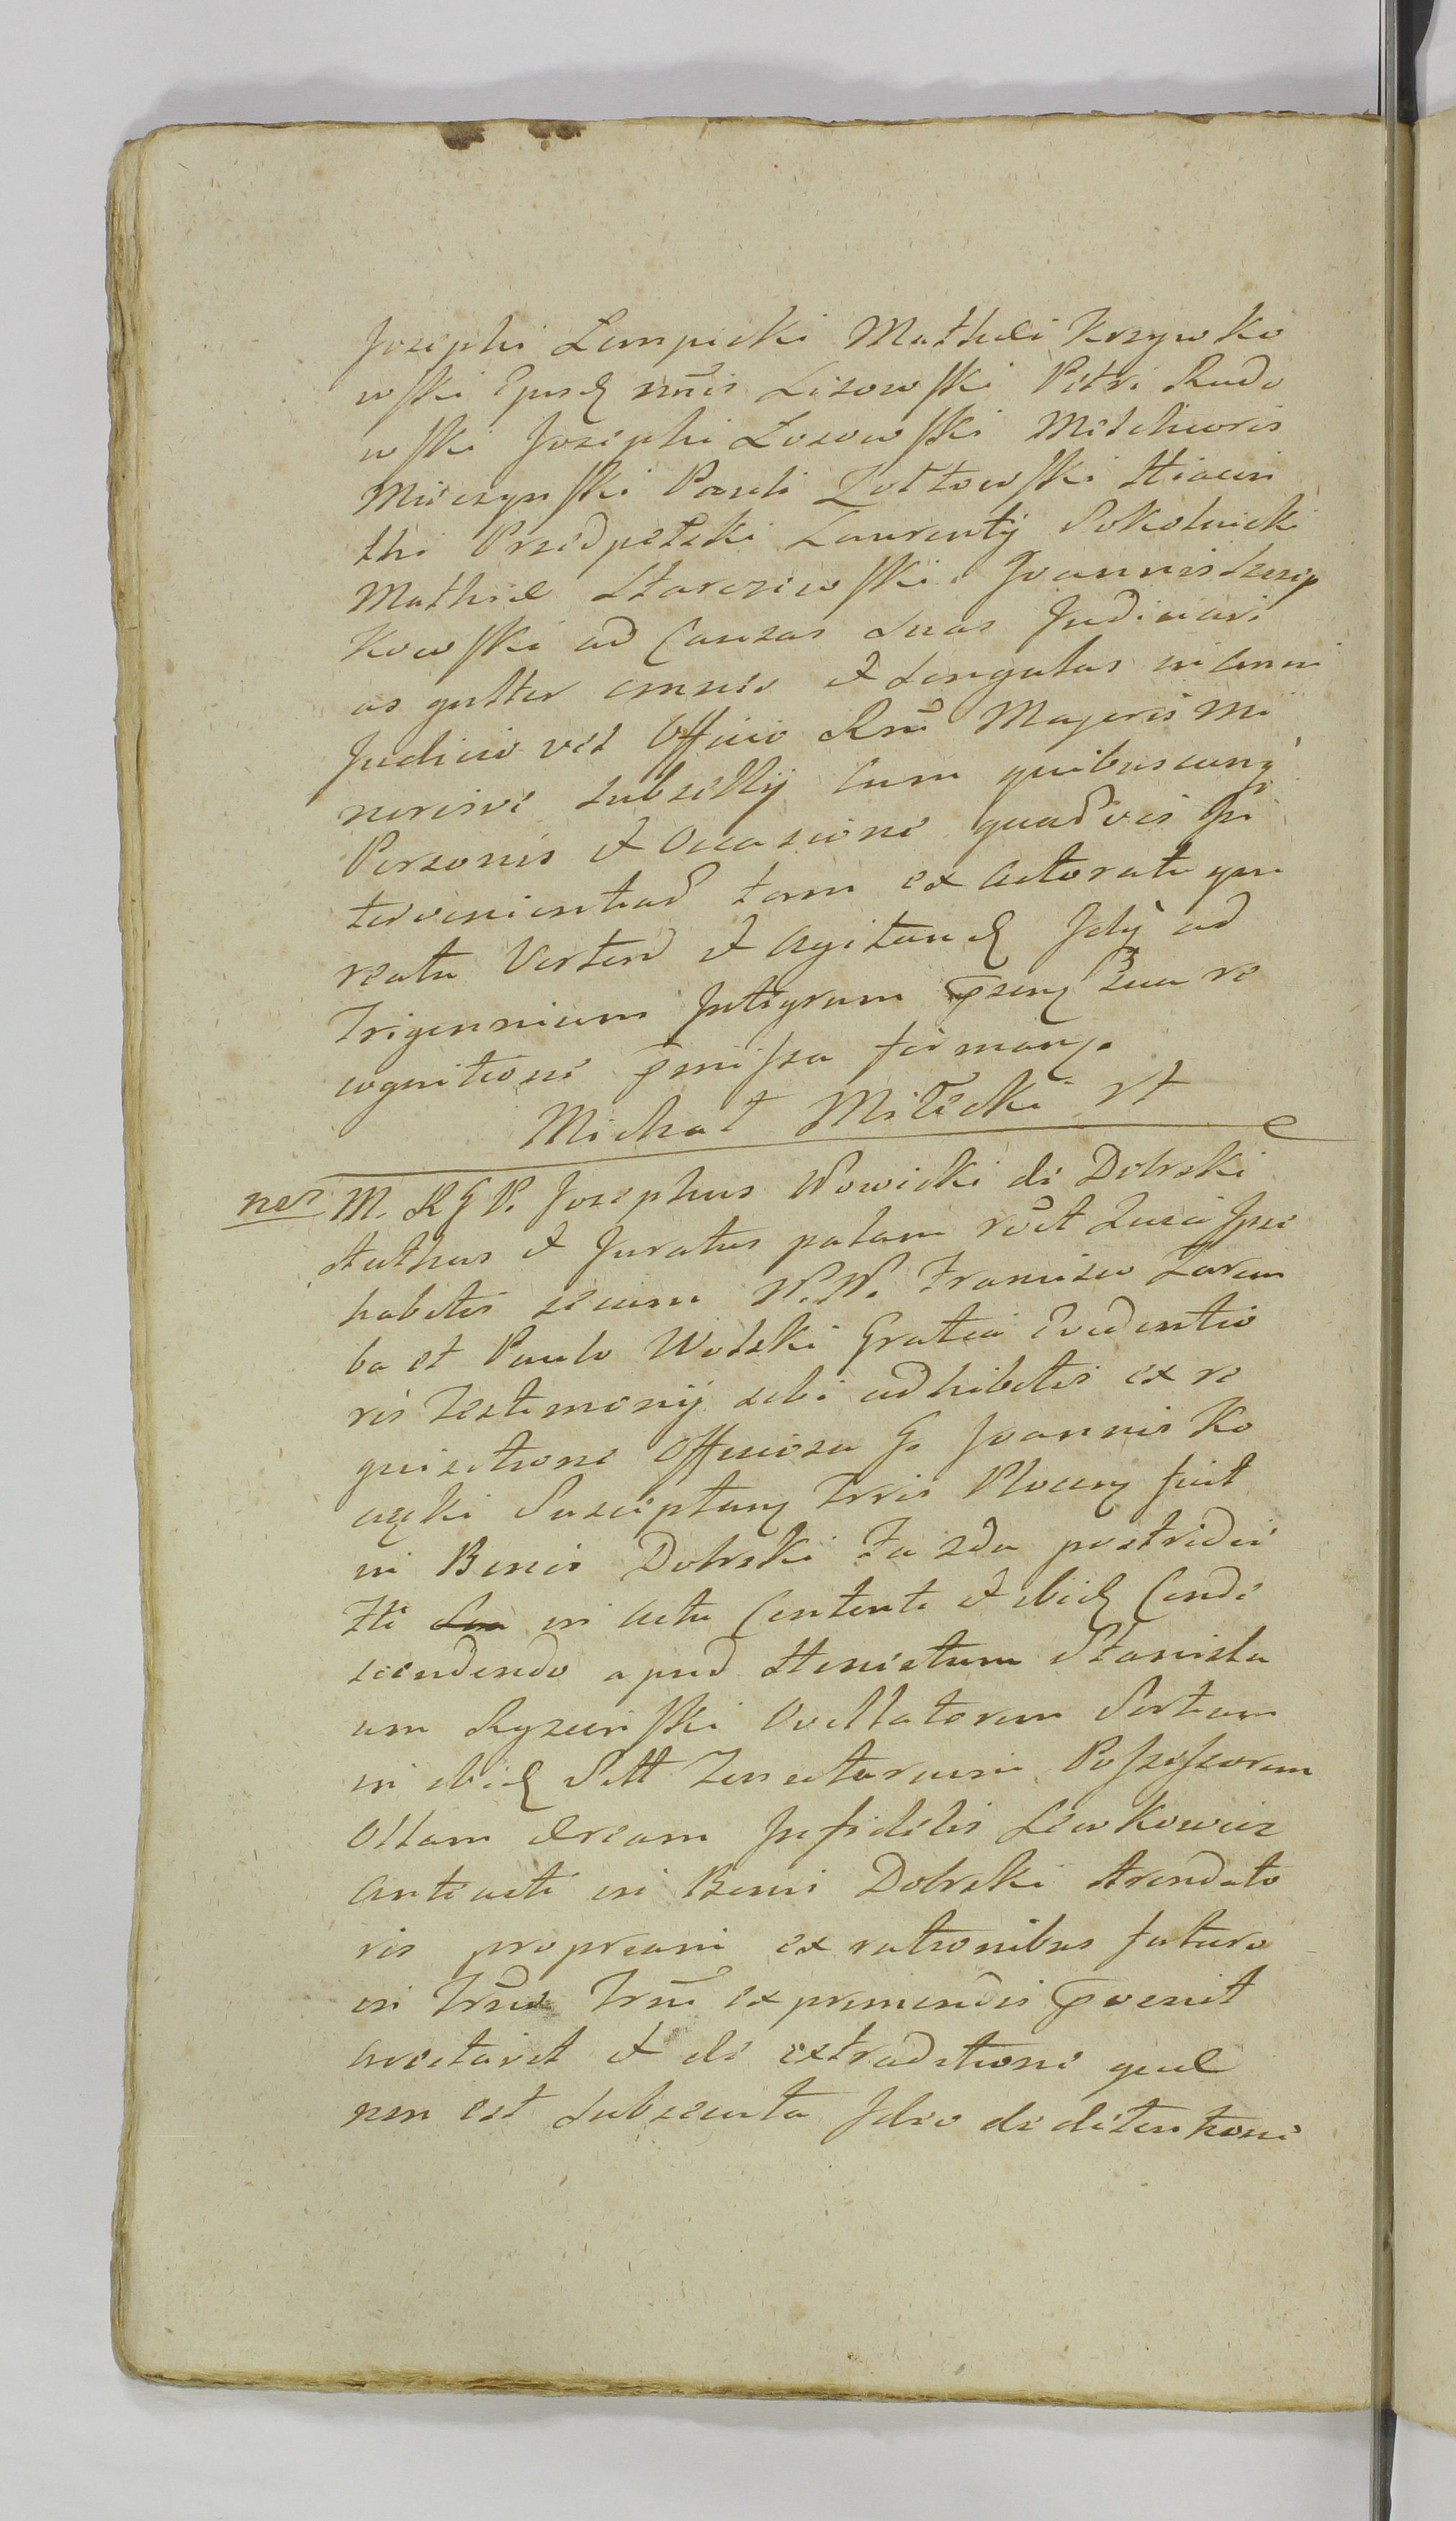 Josephi Lempicki Mathei Krzywko
wski Ejusd nnis Lisowski Petri Rudo
wski Josephi Losowski Melchioris
Mieczynski Pauli Zołtowski Hiacin
thi Przedpełski Laurentij Sokolnicki
Mathiæ Starczewski Joannis Szczep
kowski ad Causas suas Judiciari
as gnlter omnes et singulas in omni
Judicio vel Officio Rni Majoris mi
norisve subsellij cum quibuscunq
Personis et occasione quadvis In
tervenientiad tam ex actoratu quam
reatu Vertend et agitand Jdq ad
Trigennium Integrum psenq sua re
cognitione pmissa firmanq.
Michał Milecki
ner M. RGP. Josephus Nowicki de Dobrski
Authus et Juratus palam rect Quia Ipse
habitis secum N.N. Francisco Zarem
ba et Paulo Wolski Gratia Evidentio
ris Testimonij sibi adhibitis ex re
quisitione Officiosa G. Joannis Ko
Susceptanq Trris Plocen fuit
in Bonis Dobrski Fa 2da postridie
Fti in actu Contenti et ibid Conde
scendendo apud Honestum Stanisla
um Ryzinski Ovellatorem Sortium
in ibid Sitt Tenutariumi Possessorem
Ollam ream Infidelis Lewkowicz
anteacti in Bonis Dobrski Arendato
ris propriam ex rationibus futuro
in Trno Trmi exprimendis pvenit
arestavit et de extraditione quæ
non est subsecuta Jdeo de detentione